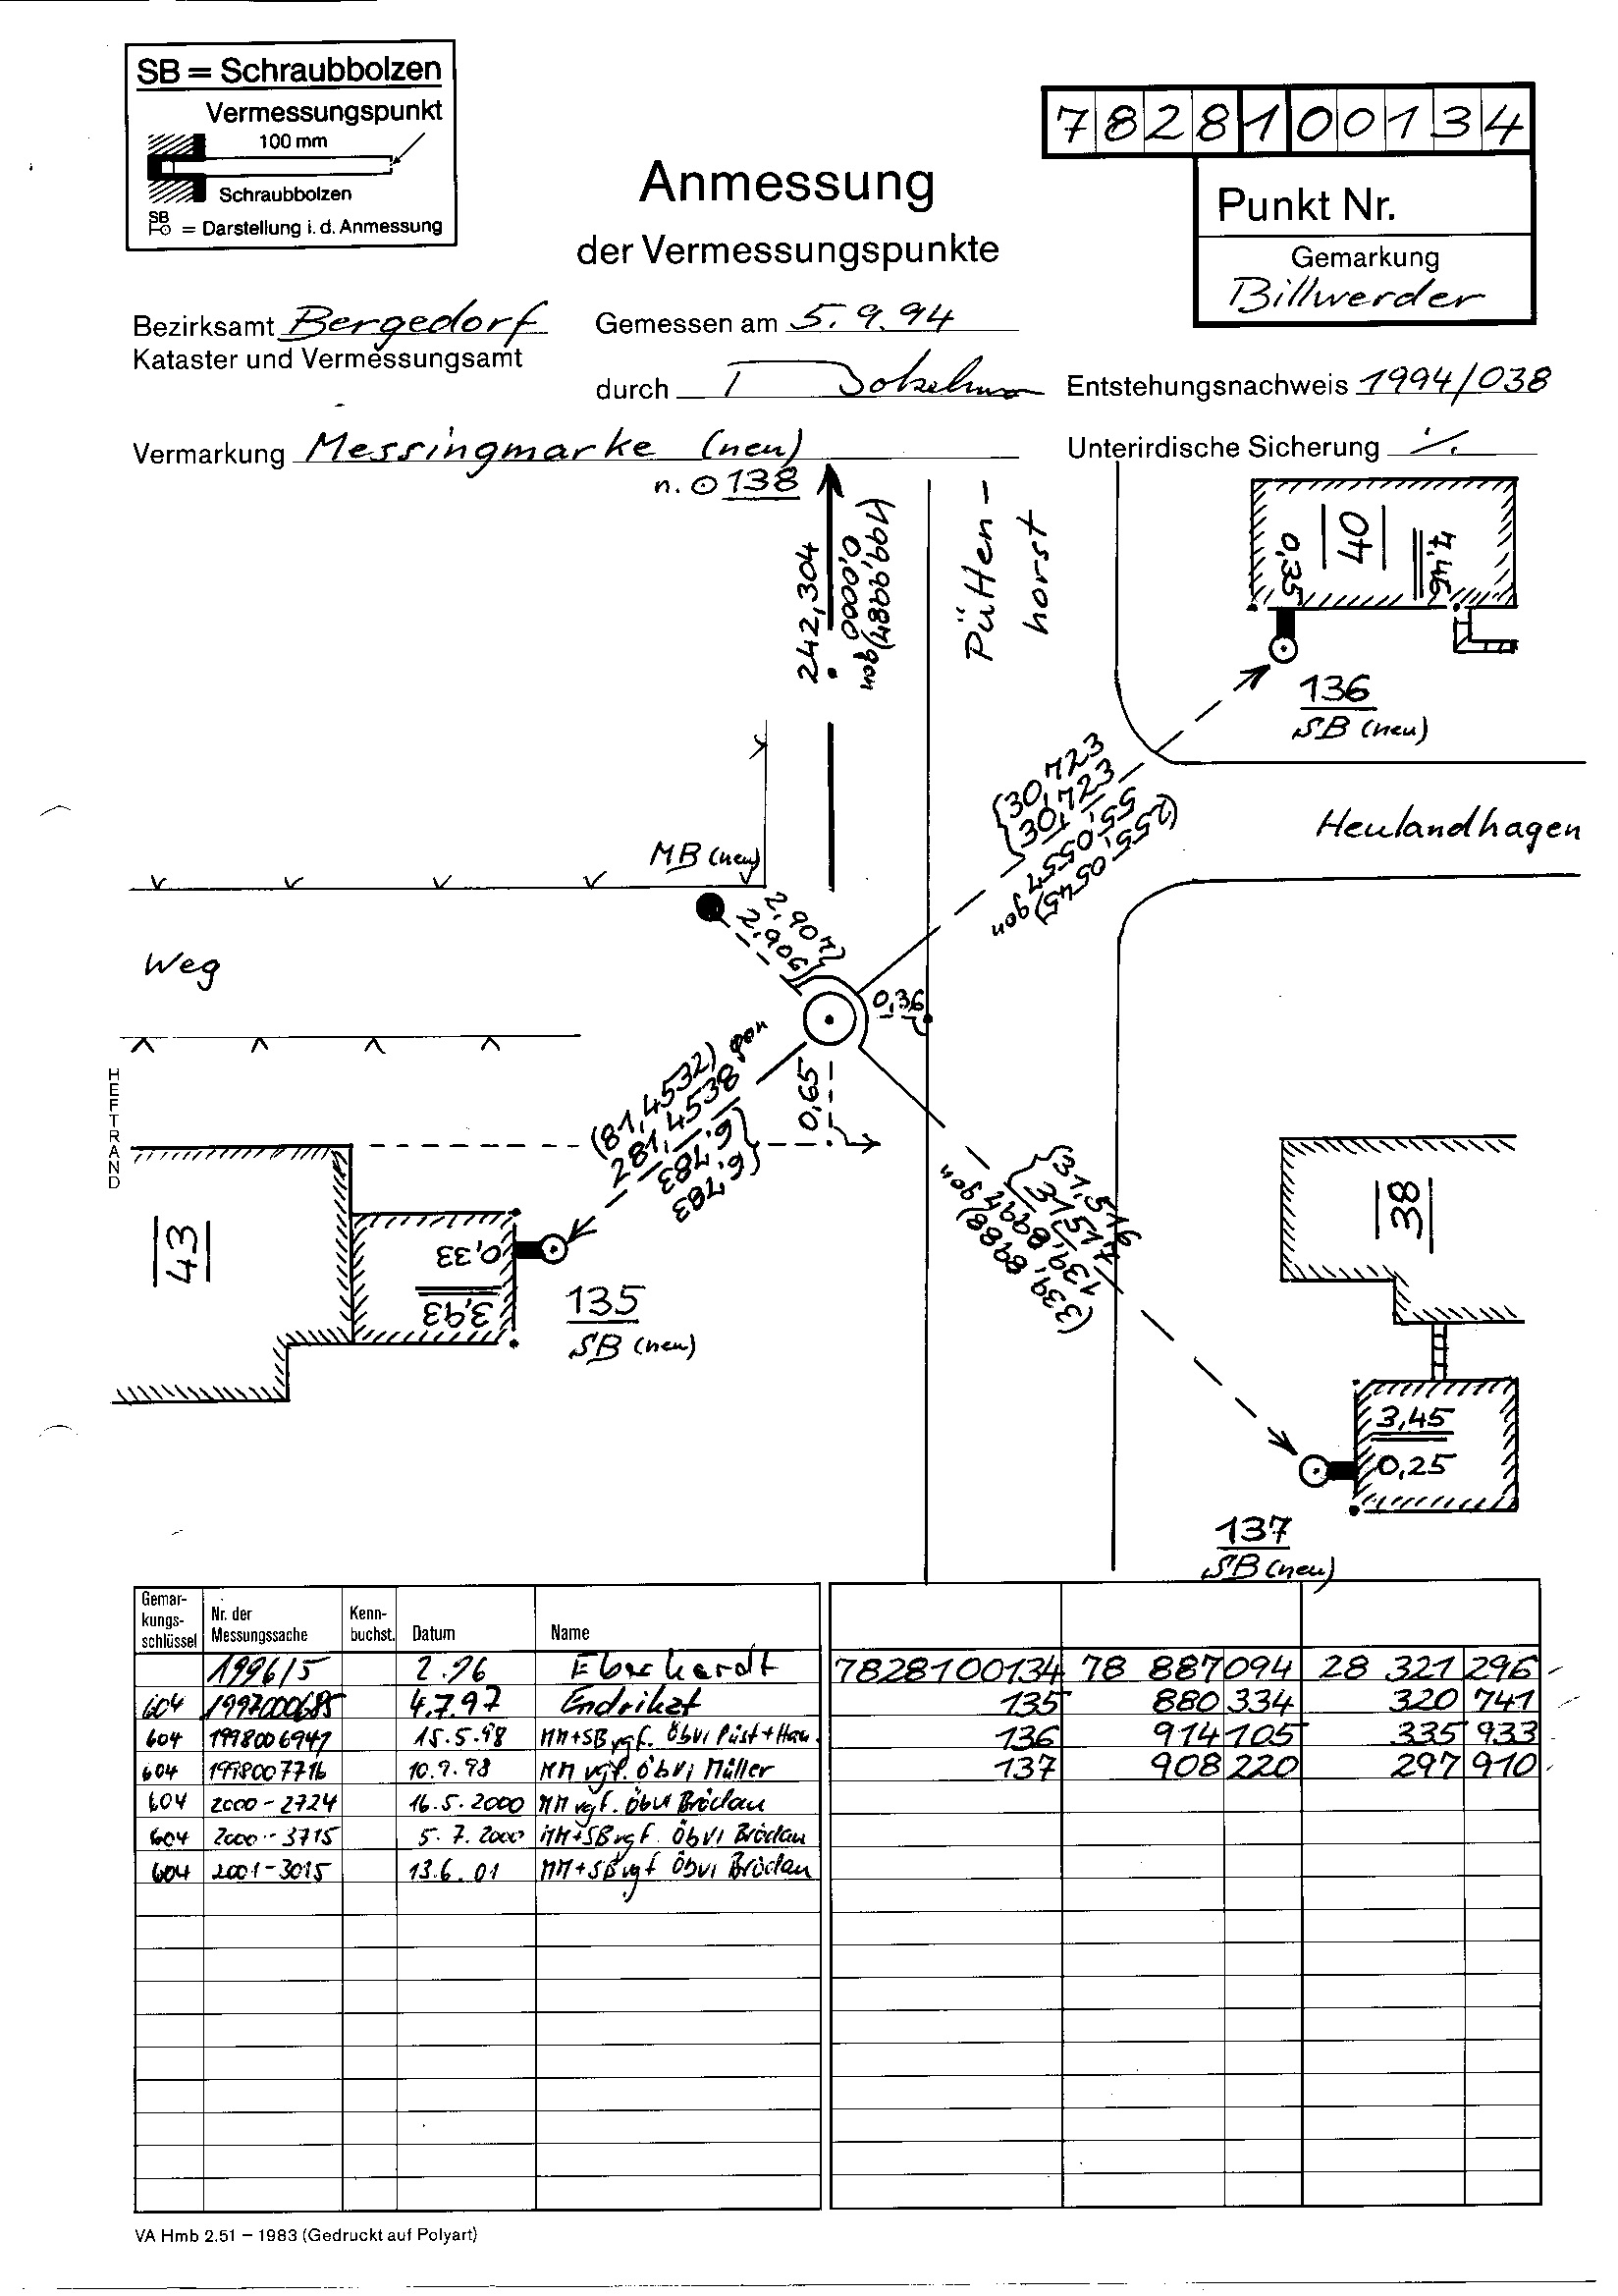 SB = Schraubbolzen
Vermessungspunkt
100 mm
Schraubbolzen
SB
= Darstellung i. d. Anmessung
7828100134
Punkt Nr.
Gemarkung
Billwerder
Anmessung
der Vermessungspunkte
Bezirksamt Bergedorf
Kataster und Vermessungsamt
Gemessen am 5.9.94
durch
Entstehungsnachweis 1994/038
Vermarkung Messingmarke (neu)
Unterirdische Sicherung ./.
n. ⊙ 138
242,304
0,0000
(199,9984) gon
Pütten-
horst
40
0,35
7,46
136
SB (neu)
(30,723
30,723
55,0557
(255,0545) gon
Heulandhagen
MB (neu)
2,907
2,906
Weg
0,36
0,65
(81,4532) gon
281,4538
6,783
6,783
HEFTRAND
43
0,33
3,93
135
SB (neu)
31,516
31,517
139,8997 gon
(339,8988)
38
3,45
0,25
137
SB (neu)
Gemar-
kungs-
schlüssel
Nr. der
Messungssache
Kenn-
buchst.
Datum
Name
1996/5 2.96 Eberhardt 7828100134 78 887 094 28 321 296
604 1997000685 4.7.97 Endrikat 135 880 334 320 741
604 1998006947 15.5.98 MM+SB vgf. ÖbVI Püst+Hau. 136 914 105 335 933
604 1998007716 10.9.98 MM vgf. ÖbVI Müller 137 908 220 297 910
604 2000-2724 16.5.2000 MM vgf. ÖbVI Bröckau
604 2000-3715 5.7.2000 MM+SB vgf. ÖbVI Bröckau
604 2001-3015 13.6.01 MM+SB vgf ÖbVI Bröckau
VA Hmb 2.51 – 1983 (Gedruckt auf Polyart)